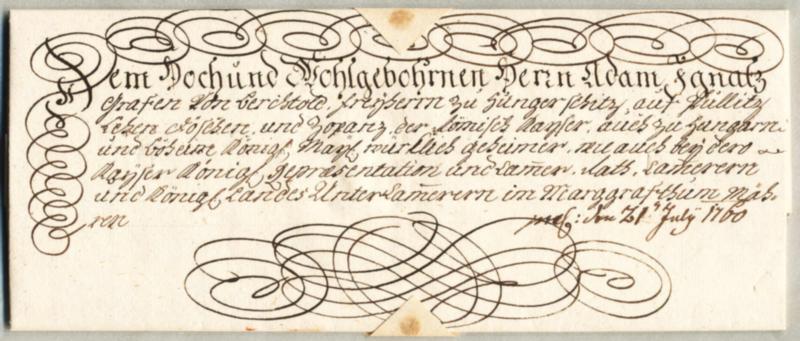 Dem Hoch und Wohlgebohrnen Herrn Adam Ignatz
Grafen von Berchtold, freyherrn zu Hungerschitz, auf Pullitz
Lehen Goschen, und Zopanz, der Römisch Kayser. auch zu Hungarn
und böheim Königl. May. würcklich geheimer, wie auch bey dero
Kayser Königl. Repraesentation und Cam̄er Rath, Camerern
und Königl. Landes Unter Cam̄erern im Marggrafthum Mäh-
ren
den 21. July 1760